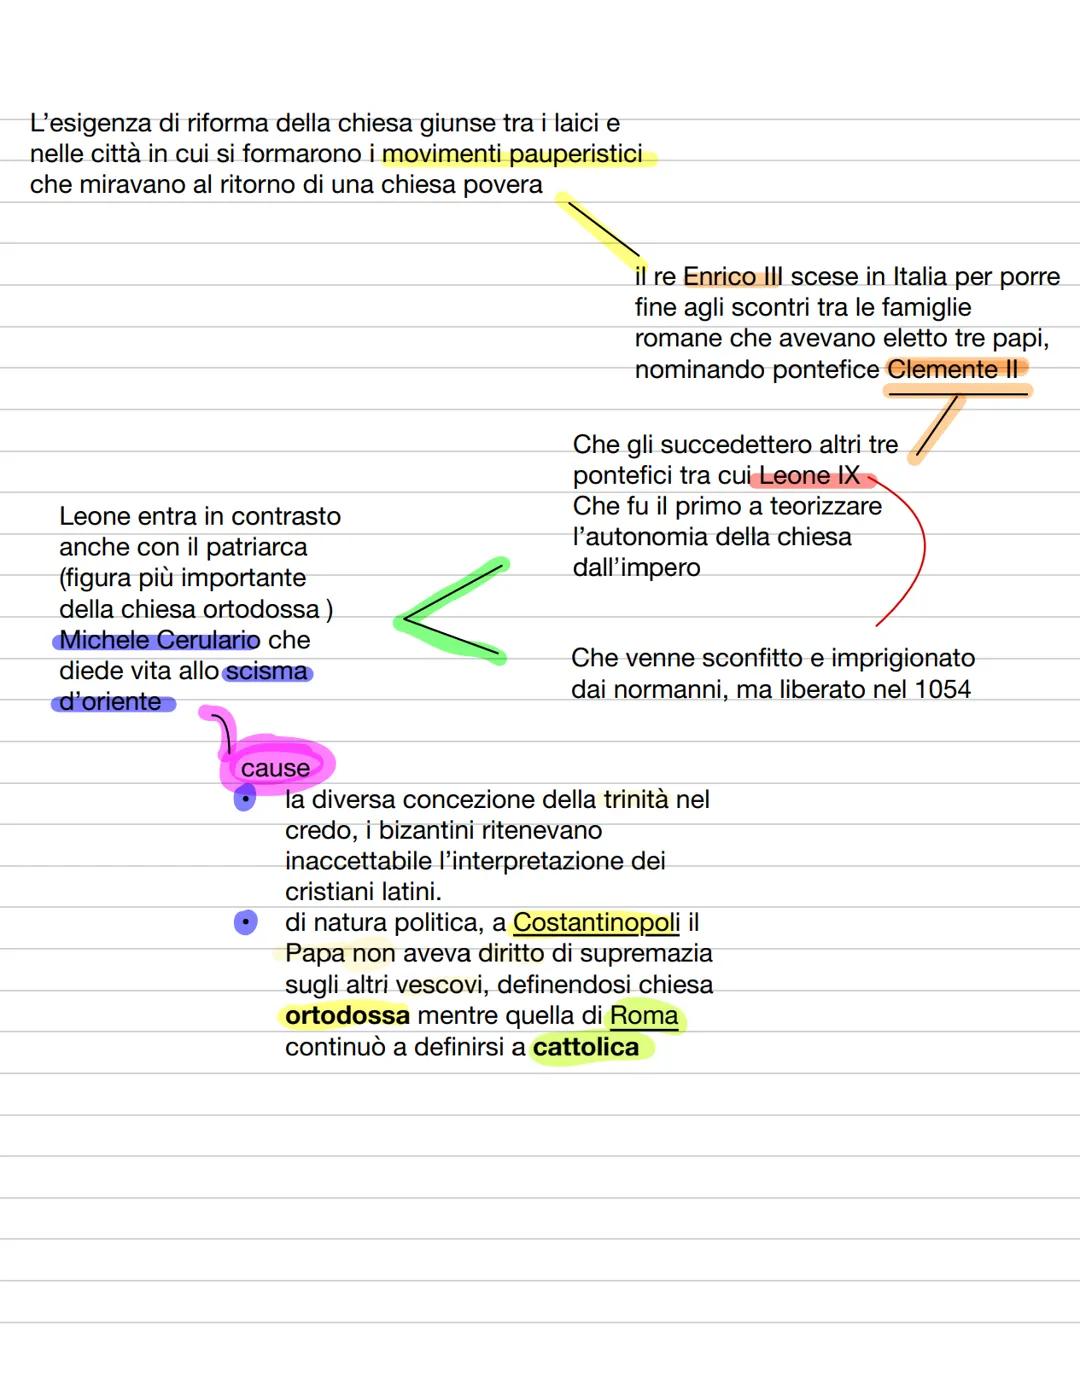 L'esigenza di riforma della chiesa giunse tra i laici e
nelle città in cui si formarono i movimenti pauperistici
che miravano al ritorno di una chiesa povera
il re Enrico III scese in Italia per porre
fine agli scontri tra le famiglie
romane che avevano eletto tre papi,
nominando pontefice Clemente II
Che gli succedettero altri tre
pontefici tra cui Leone IX
Che fu il primo a teorizzare
l'autonomia della chiesa
dall'impero
Che venne sconfitto e imprigionato
dai normanni, ma liberato nel 1054
Leone entra in contrasto
anche con il patriarca
(figura più importante
della chiesa ortodossa )
Michele Cerulario che
diede vita allo scisma
d'oriente
cause
• la diversa concezione della trinità nel
credo, i bizantini ritenevano
inaccettabile l'interpretazione dei
cristiani latini.
• di natura politica, a Costantinopoli il
Papa non aveva diritto di supremazia
sugli altri vescovi, definendosi chiesa
ortodossa mentre quella di Roma
continuò a definirsi a cattolica